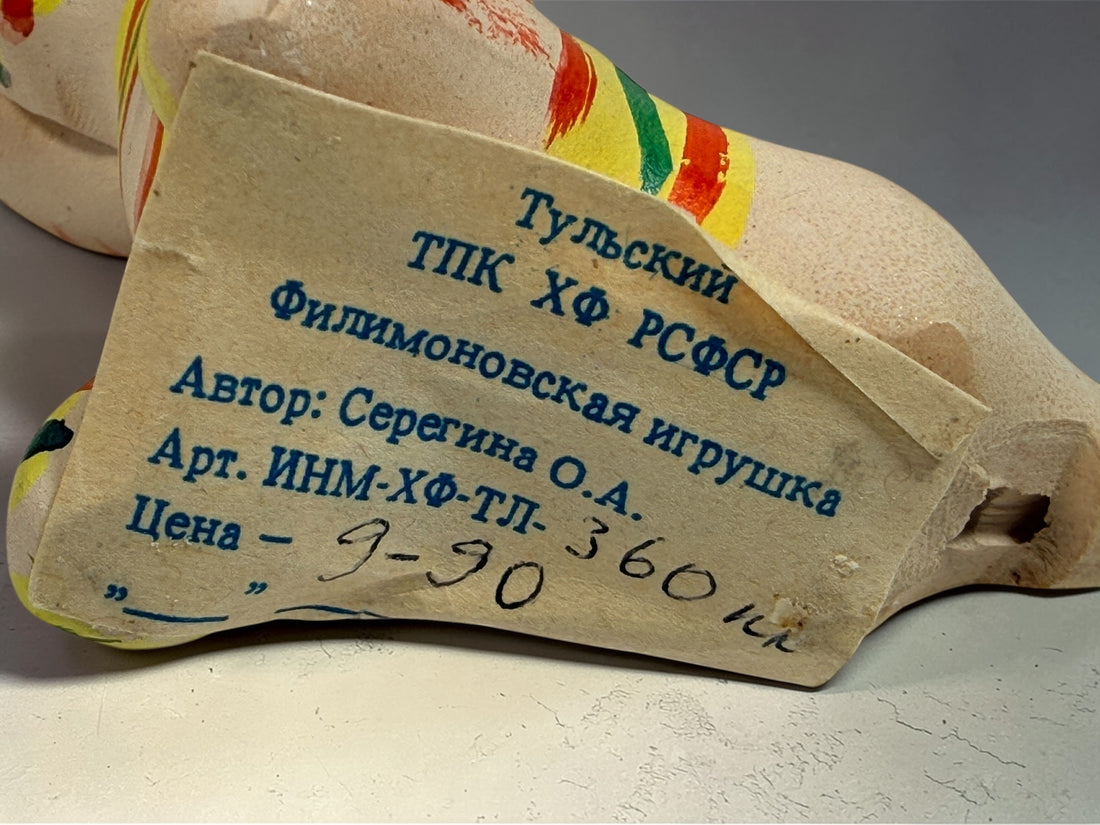 Тульский
ТПК ХФ РСФСР
Филимоновская игрушка
Автор: Серегина О.А.
Арт. ИНМ-ХФ-ТЛ- 360
Цена – 9-90